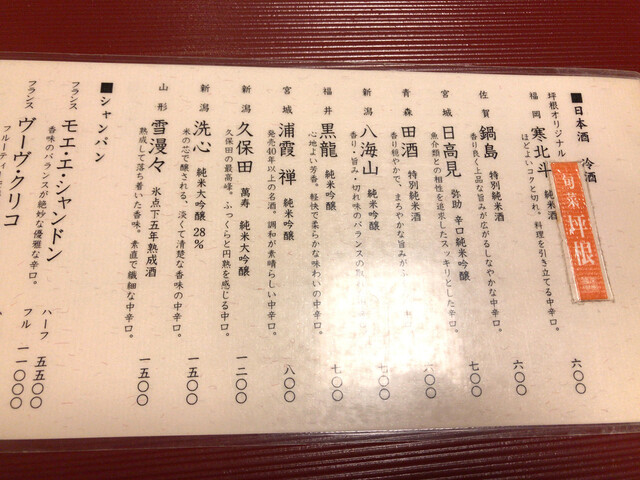 ■日本酒 冷酒
坪根オリジナル
福岡 寒北斗 純米酒
ほどよいコクと切れ。料理を引き立てる中辛口。
六〇〇
旬菜 坪根
佐賀 鍋島 特別純米酒
香り良く上品な旨みが広がるしなやかな中辛口。
六〇〇
宮城 日高見 弥助 辛口純米吟醸
魚介類との相性を追求したスッキリとした辛口。
七〇〇
青森 田酒 特別純米酒
香り穏やかで、まろやかな旨みが
六〇〇
新潟 八海山 純米吟醸
香り・旨み・切れ味のバランスの取
七〇〇
福井 黒龍 純米吟醸
心地よい芳香。軽快で柔らかな味わいの中辛口。
七〇〇
宮城 浦霞 禅 純米吟醸
発売40年以上の名酒。調和が素晴らしい中辛口。
八〇〇
新潟 久保田 萬寿 純米大吟醸
久保田の最高峰。ふっくらと円熟を感じる中口。
一二〇〇
新潟 洗心 純米大吟醸 28%
米の芯で醸される、淡くて清楚な香味の中辛口。
一五〇〇
山形 雪漫々 氷点下五年熟成酒
熟成して落ち着いた香味。素直で繊細な中辛口。
一五〇〇
■シャンパン
フランス モエ・エ・シャンドン
香味のバランスが絶妙な優雅な辛口。
ハーフ 五五〇〇
フル 一一〇〇〇
フランス ヴーヴ・クリコ
フルーティ